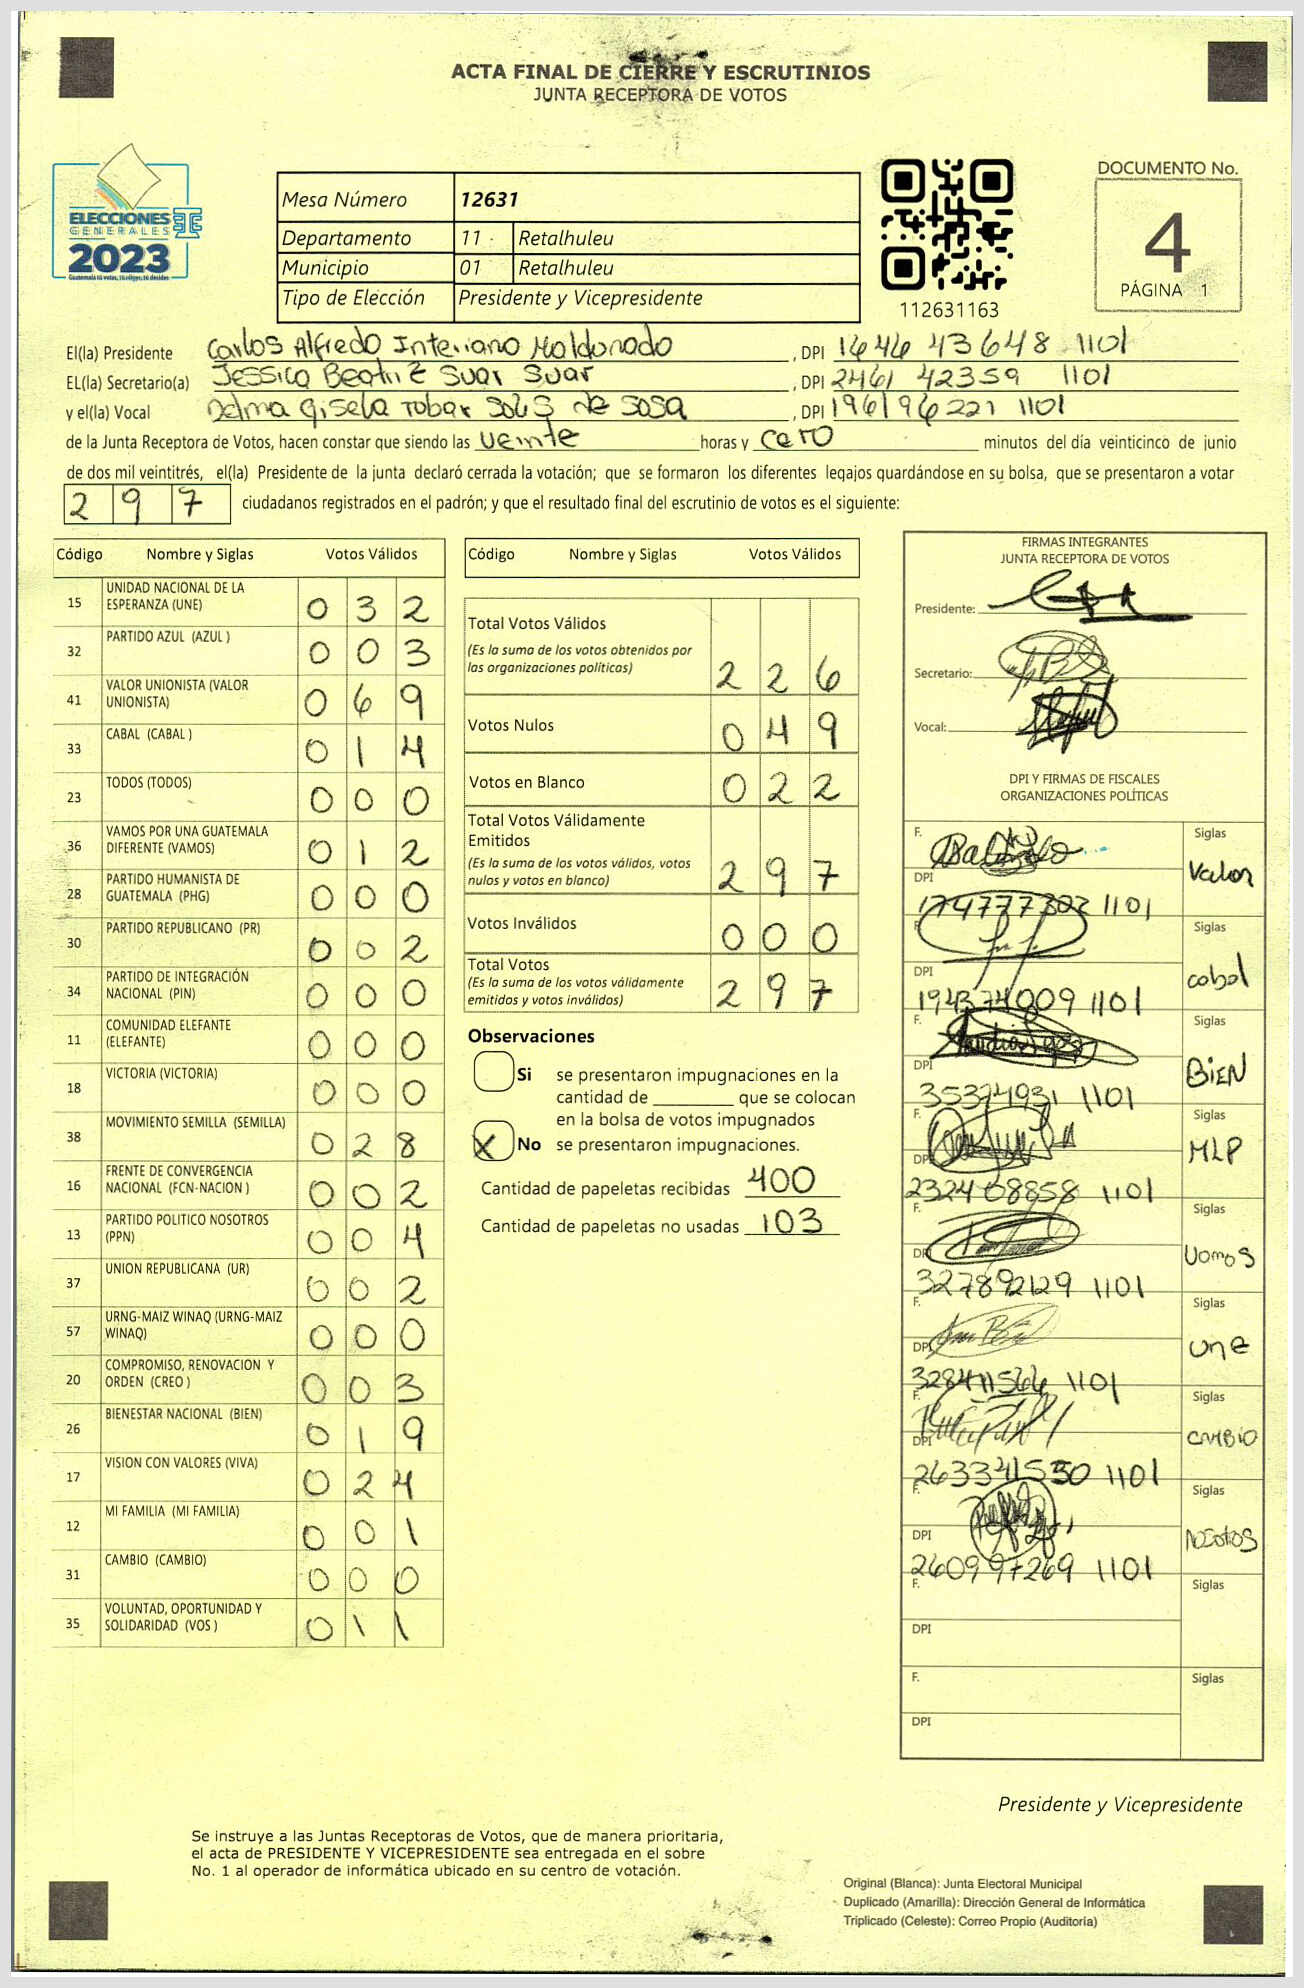 ACTA FINAL DE CIERRE Y ESCRUTINIOS
JUNTA RECEPTORA DE VOTOS
ELECCIONES
GENERALES
2023
Mesa Número 12631
Departamento 11 Retalhuleu
Municipio 01 Retalhuleu
Tipo de Elección Presidente y Vicepresidente
112631163
DOCUMENTO No.
4
PÁGINA 1
El(la) Presidente Carlos Alfredo Interiano Maldonado, DPI 1646 43648 1101
EL(la) Secretario(a) Jessica Beatriz Suar Suar, DPI 2461 42359 1101
y el(la) Vocal Delma Gisela Tobar Solis de Sosa, DPI 1961 96221 1101
de la Junta Receptora de Votos, hacen constar que siendo las veinte horas y cero minutos del día veinticinco de junio
de dos mil veintitrés, el(la) Presidente de la junta declaró cerrada la votación; que se formaron los diferentes legajos quardándose en su bolsa, que se presentaron a votar
297 ciudadanos registrados en el padrón; y que el resultado final del escrutinio de votos es el siguiente:
Código Nombre y Siglas Votos Válidos
15 UNIDAD NACIONAL DE LA ESPERANZA (UNE) 032
32 PARTIDO AZUL (AZUL ) 003
41 VALOR UNIONISTA (VALOR UNIONISTA) 069
33 CABAL (CABAL ) 014
23 TODOS (TODOS) 000
36 VAMOS POR UNA GUATEMALA DIFERENTE (VAMOS) 012
28 PARTIDO HUMANISTA DE GUATEMALA (PHG) 000
30 PARTIDO REPUBLICANO (PR) 002
34 PARTIDO DE INTEGRACIÓN NACIONAL (PIN) 000
11 COMUNIDAD ELEFANTE (ELEFANTE) 000
18 VICTORIA (VICTORIA) 000
38 MOVIMIENTO SEMILLA (SEMILLA) 028
16 FRENTE DE CONVERGENCIA NACIONAL (FCN-NACION ) 002
13 PARTIDO POLITICO NOSOTROS (PPN) 004
37 UNION REPUBLICANA (UR) 002
57 URNG-MAIZ WINAQ (URNG-MAIZ WINAQ) 000
20 COMPROMISO, RENOVACION Y ORDEN (CREO ) 003
26 BIENESTAR NACIONAL (BIEN) 019
17 VISION CON VALORES (VIVA) 024
12 MI FAMILIA (MI FAMILIA) 001
31 CAMBIO (CAMBIO) 000
35 VOLUNTAD, OPORTUNIDAD Y SOLIDARIDAD (VOS ) 011
Código Nombre y Siglas Votos Válidos
Total Votos Válidos
(Es la suma de los votos obtenidos por
las organizaciones políticas) 226
Votos Nulos 049
Votos en Blanco 022
Total Votos Válidamente
Emitidos
(Es la suma de los votos válidos, votos
nulos y votos en blanco) 297
Votos Inválidos 000
Total Votos
(Es la suma de los votos válidamente
emitidos y votos inválidos) 297
Observaciones
Si se presentaron impugnaciones en la
cantidad de ________ que se colocan
en la bolsa de votos impugnados
X No se presentaron impugnaciones.
Cantidad de papeletas recibidas 400
Cantidad de papeletas no usadas 103
FIRMAS INTEGRANTES
JUNTA RECEPTORA DE VOTOS
Presidente:
Secretario:
Vocal:
DPI Y FIRMAS DE FISCALES
ORGANIZACIONES POLÍTICAS
F. Siglas
DPI Valor
1101
F. Siglas
DPI cabal
194374009 1101
F. Siglas
DPI BIEN
35374931 1101
F. Siglas
DPI MLP
232408858 1101
F. Siglas
DPI Vamos
327892129 1101
F. Siglas
DPI une
1101
F. Siglas
DPI CAMBIO
263341550 1101
F. Siglas
DPI Nosotros
260997269 1101
F. Siglas
DPI
F. Siglas
DPI
Presidente y Vicepresidente
Se instruye a las Juntas Receptoras de Votos, que de manera prioritaria,
el acta de PRESIDENTE Y VICEPRESIDENTE sea entregada en el sobre
No. 1 al operador de informática ubicado en su centro de votación.
Original (Blanca): Junta Electoral Municipal
Duplicado (Amarilla): Dirección General de Informática
Triplicado (Celeste): Correo Propio (Auditoría)